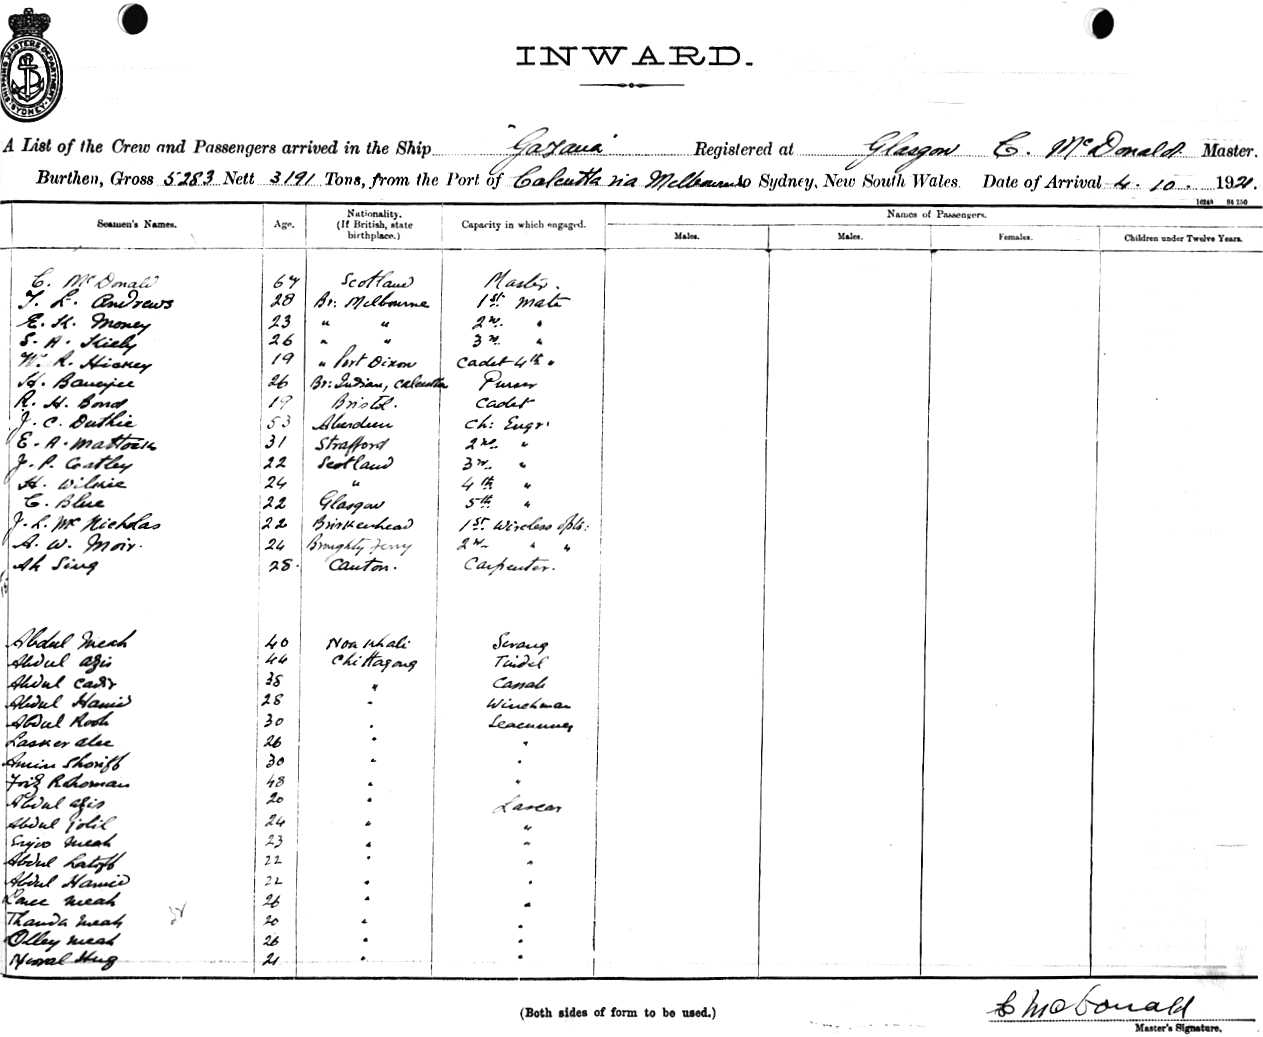 SHIPPING MASTERS DEPARTMENT SYDNEY
INWARD.
A List of the Crew and Passengers arrived in the Ship "Gazana" Registered at Glasgow C. McDonald Master.
Burthen, Gross 5283 Nett 3191 Tons, from the Port of Calcutta via Melbourne to Sydney, New South Wales. Date of Arrival 4. 10. 1921.
Seamen's Names. Age. Nationality. (If British, state birthplace.) Capacity in which engaged. Names of Passengers.
Males. Males. Females. Children under Twelve Years.
C. McDonald 67 Scotland Master.
T. L. Andrews 28 Br: Melbourne 1st Mate
E. K. Money 23 " " 2nd "
S. A. Kiely 26 " " 3rd "
W. R. Hickey 19 " Port Dixon Cadet 4th "
H. Banerjee 26 Br: Indian, Calcutta Purser
R. H. Bond 19 Bristol. Cadet
J. C. Duthie 53 Aberdeen Ch: Engr.
E. A. Mattock 31 Strafford 2nd "
J. P. Coatley 22 Scotland 3rd "
H. Wilkie 24 " 4th "
C. Blue 22 Glasgow 5th "
J. L. McNicholas 22 Birkenhead 1st Wireless Optr:
A. W. Moir. 24 Broughty Ferry 2nd " "
Ah Sing 28. Canton. Carpenter.
Abdul Meah 40 Noakhali Serang
Abdul Azis 44 Chittagong Tindel
Abdul Cadir 38 " Cassab
Abdul Hamid 28 " Winchman
Abdul Rook 30 " Seacunney
Lasker Alee 26 " "
Amin Shoriff 30 " "
Foiz Rohoman 48 " "
Abdul Azis 20 " Lascar
Abdul Jolil 24 " "
Meah 23 " "
Abdul Latoff 22 " "
Abdul Hamid 22 " "
Meah 26 " "
Thanda Meah 20 " "
Olley Meah 26 " "
Huq 21 " "
(Both sides of form to be used.)
C McDonald
Master's Signature.